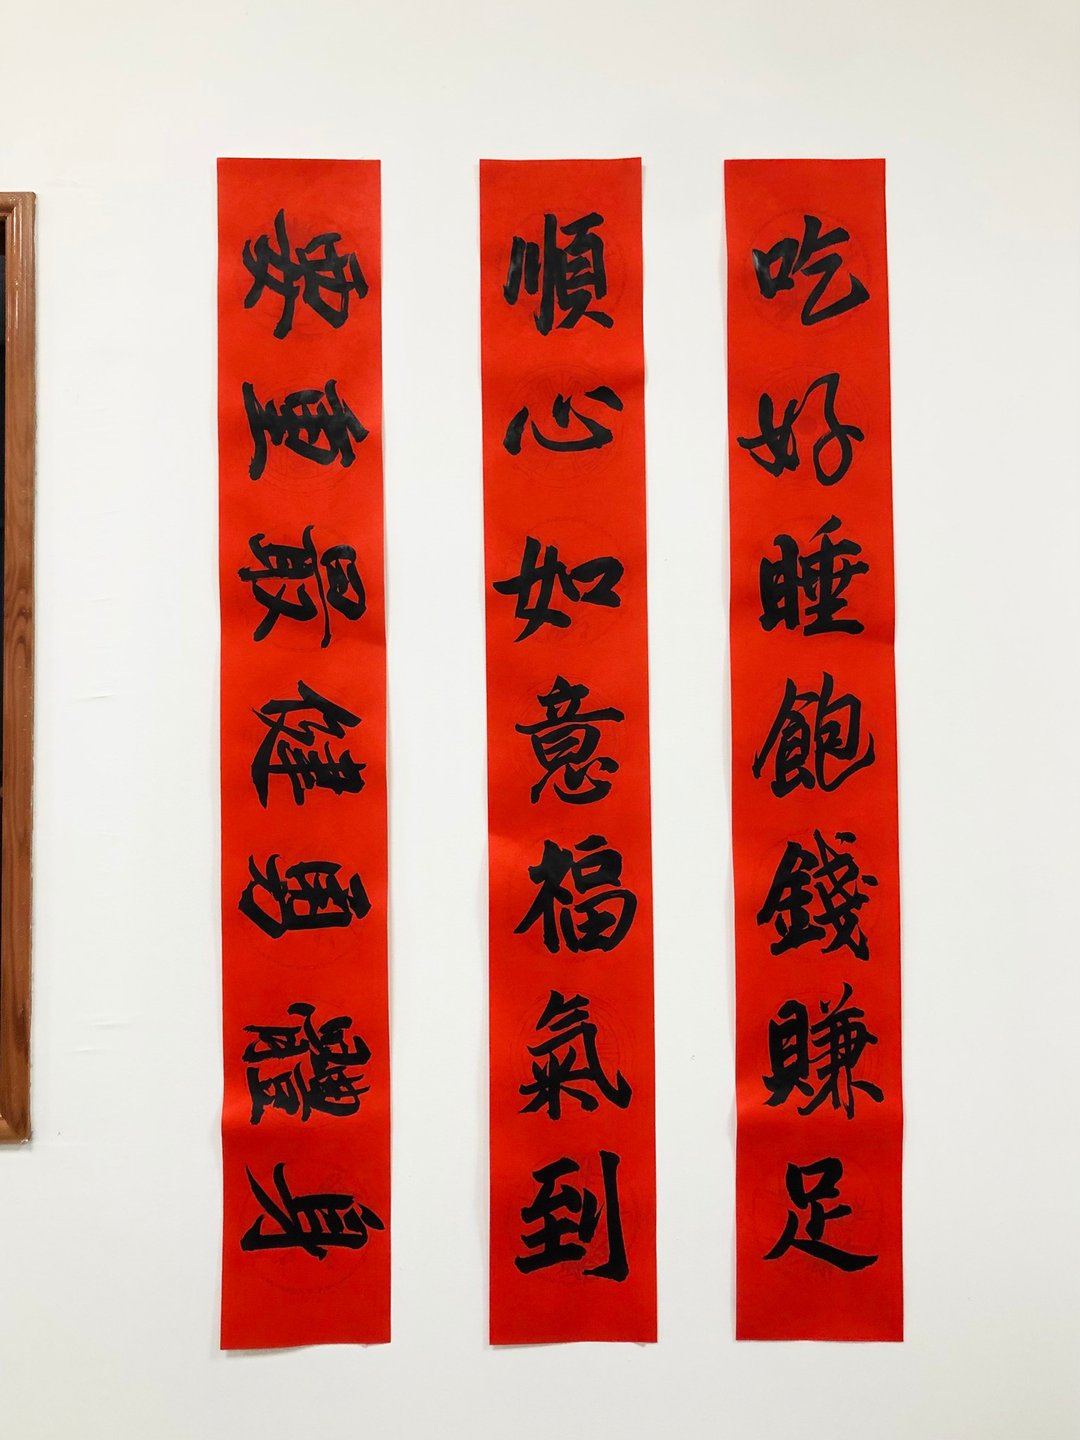 吃好睡飽錢賺足
順心如意福氣到
身體勇健最重要